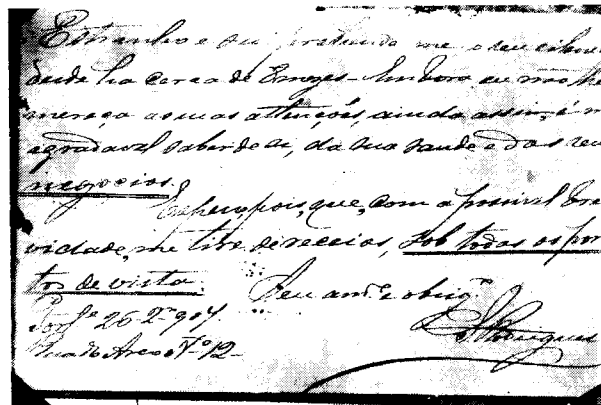 Estranho e sur prehende me o seu silen
desde ha cerca de 3 mezes - Embora eu não lhe
mereça as suas attenções, ainda assim, é m
agradavel saber de si, da sua saude e dos seu
negocios.
Espero, pois, que, com a possivel bre
vidade, me tire de receios, sob todos os pon
tos de vista.
Seu amº e obrigº
26-2-907
Rua do Arco Nº 12-
Rodrigues